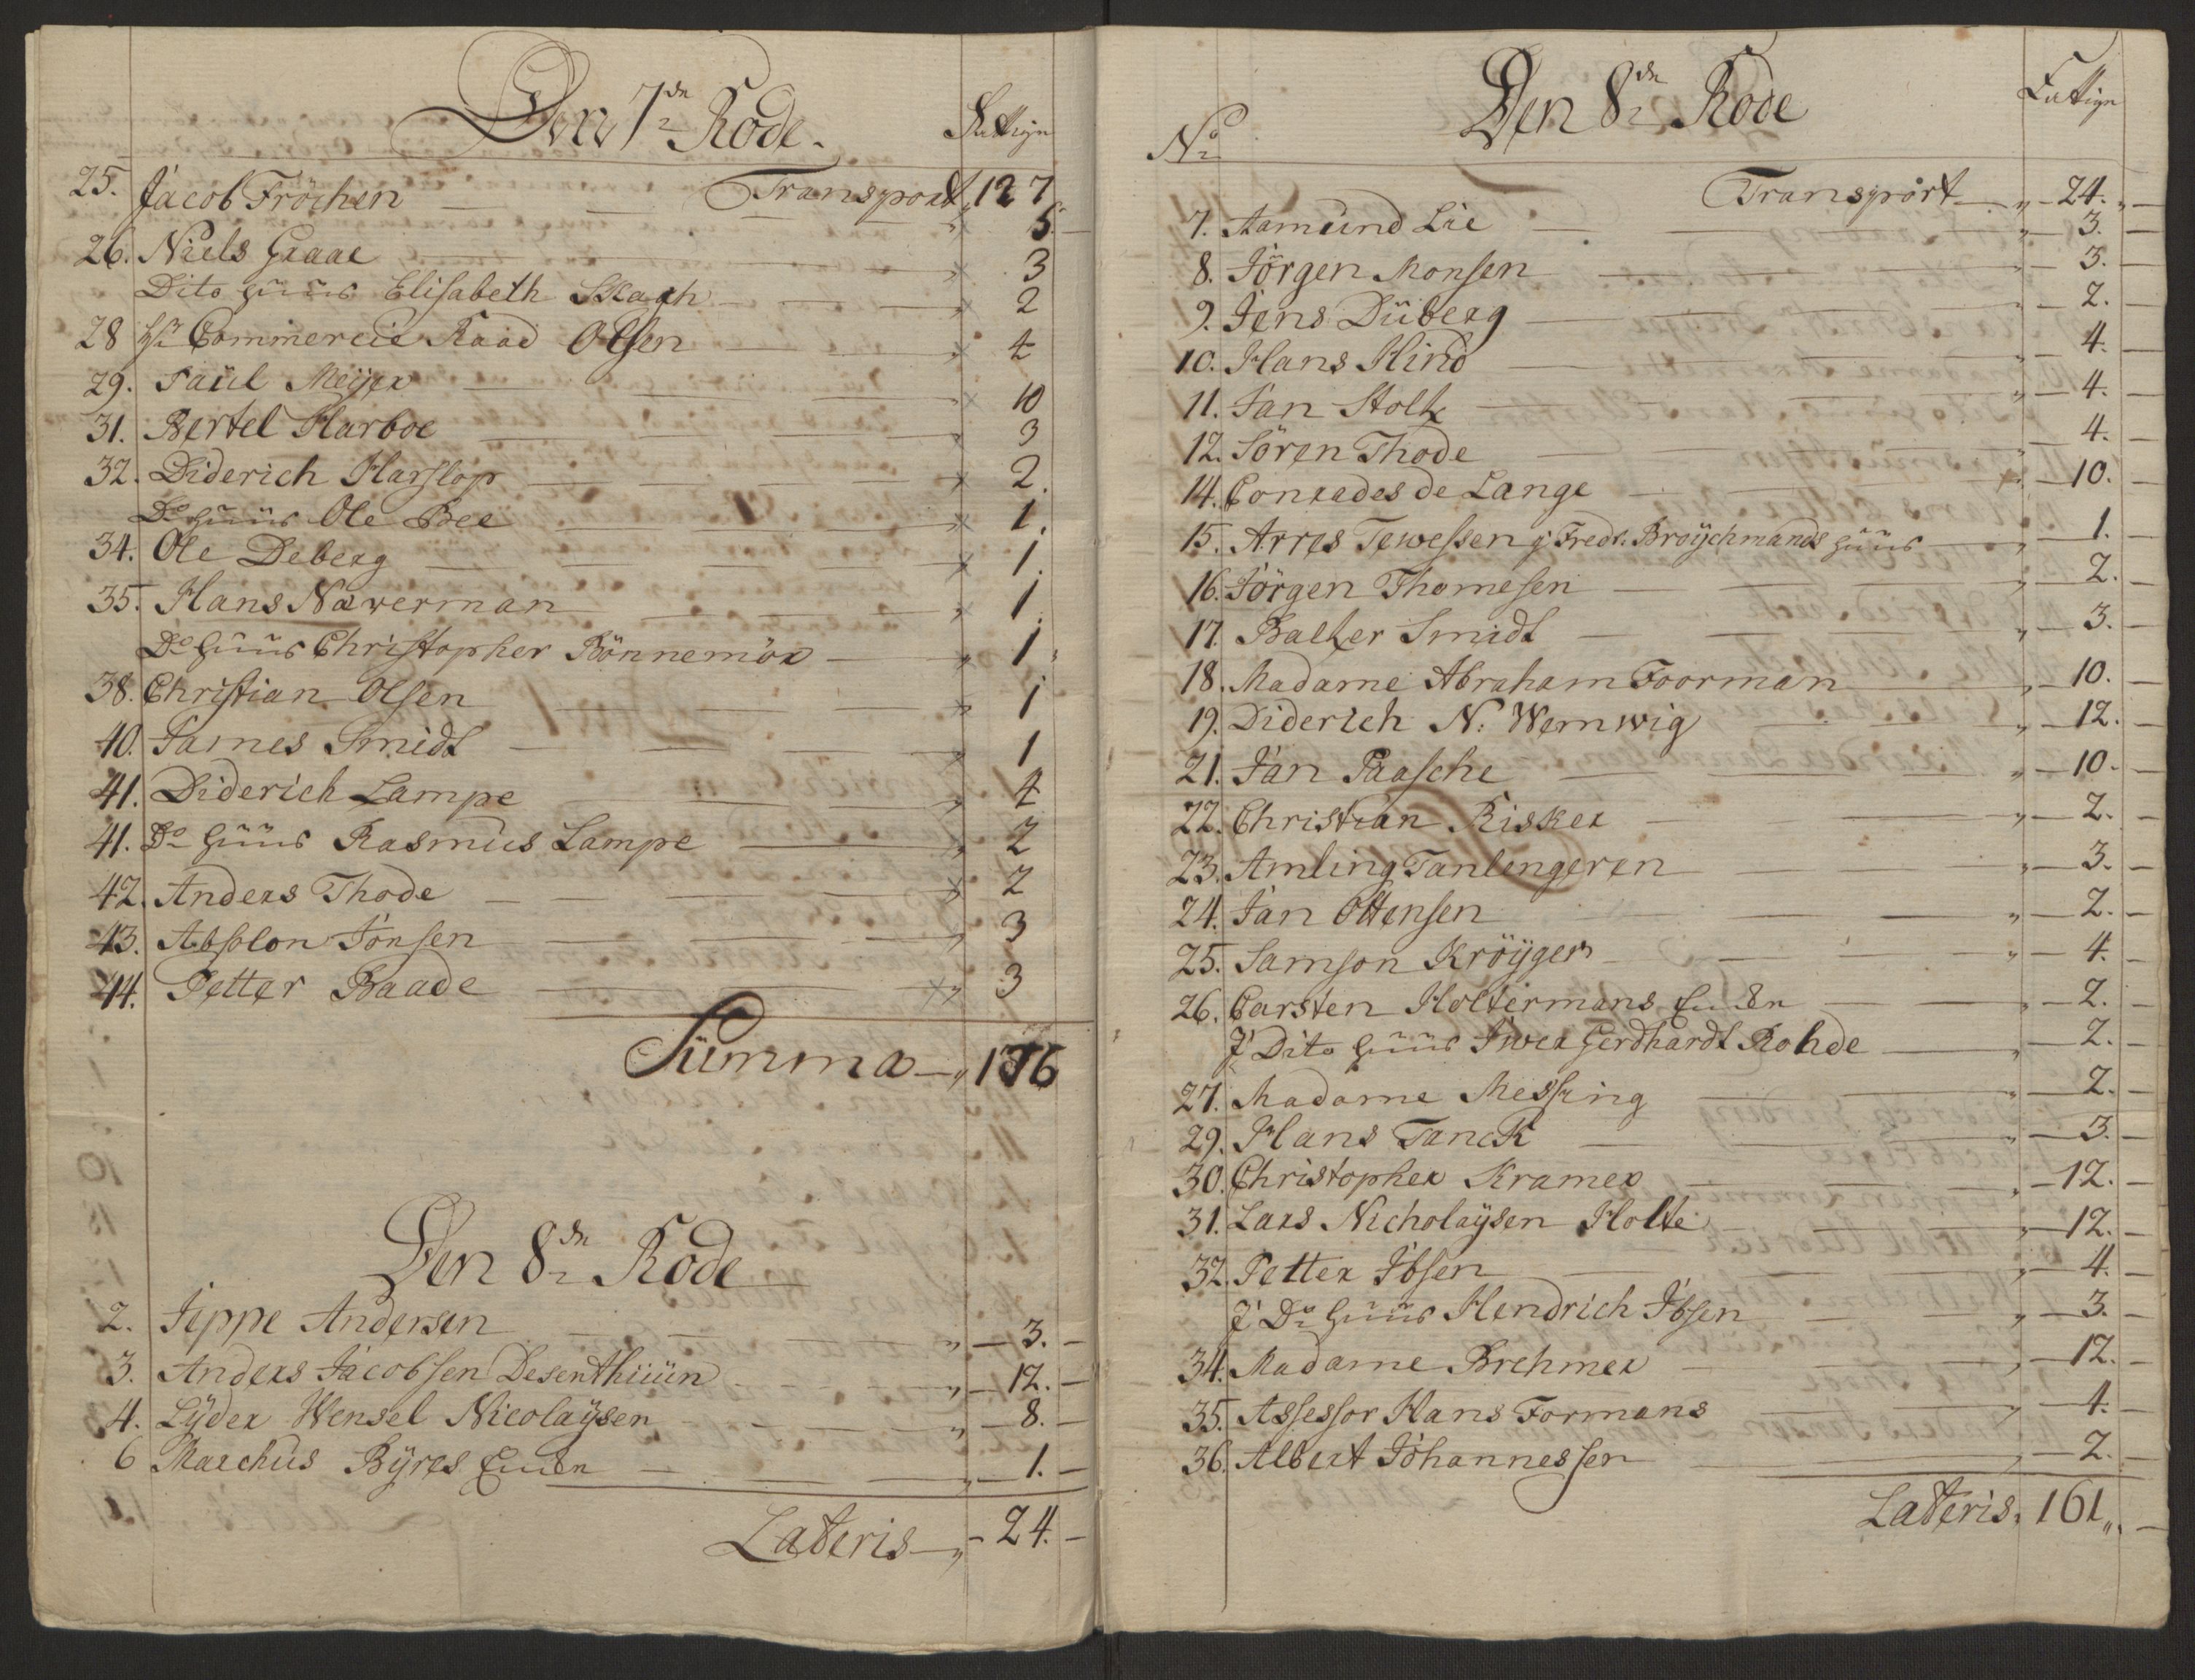 Den 7de Rode.
Fattige
Transport 127
25. Jacob Fröchen 5.
26. Niels Graae 3
Dito Huus Elisabeth Skagh 2
28 Hr Commercie Raad Olsen 4
29. Paül Meÿer 10
31. Bertel Harboe 3
32. Diderich Harslop 2.
Do Huus Ole Bee 1.
34. Ole Deberg 1.
35. Hans Nawerman 1.
Do Huus Christopher Bönnemör 1
38. Christian Olsen 1
40. James Smidt 1
41. Diderich Lampe 4
41. Do Huus Rasmus Lampe 2
42. Anders Thode 2
43. Absolon Jonsen 3
44. Petter Baade 3
Summa 176
Den 8de Rode
2. Jeppe Andersen 3.
3. Anders Jacobsen Desenthuün 12.
4. Lÿder Wensel Nicolaÿsen 8.
6 Marchus Bÿres Enken 1.
Lateris 24.
Den 8de Rode
No
Fattige
Transport 24.
7. Aamund Lie 3.
8. Jörgen Monsen 3.
9. Jens Düberg 2.
10. Hans Hind 4.
11. Jan Stoltz 4.
12. Sören Thode 4.
14. Conrades de Lange 10.
15. Arres Tewessen j Fredr. Broÿchmands Huus 1.
16. Jörgen Thomesen 2.
17. Balzer Smidt 3.
18. Madame Abraham Foorman 10.
19. Diderich N. Wernwig 12.
21. Jan Paasche 10.
22. Christian Risker 2.
23. Amling Tanlengeren 3.
24. Jan Ottensen 2.
25. Samson Kröÿger 4.
26. Carsten Holtermans Enken 2.
J Dito Huus Iwer Gerdhardt Rohde 2.
27. Madame Messing 2.
29. Hans Tanck 3.
30. Christopher Kramer 12.
31. Lars Nicholaÿsen Holte 12.
32. Petter Ibsen 4.
J Do Huus Hendrich Ibsen 3.
34. Madame Brehmer 12.
35. Assessor Hans Formans 4.
36. Albert Johannessen 2.
Lateris. 161.